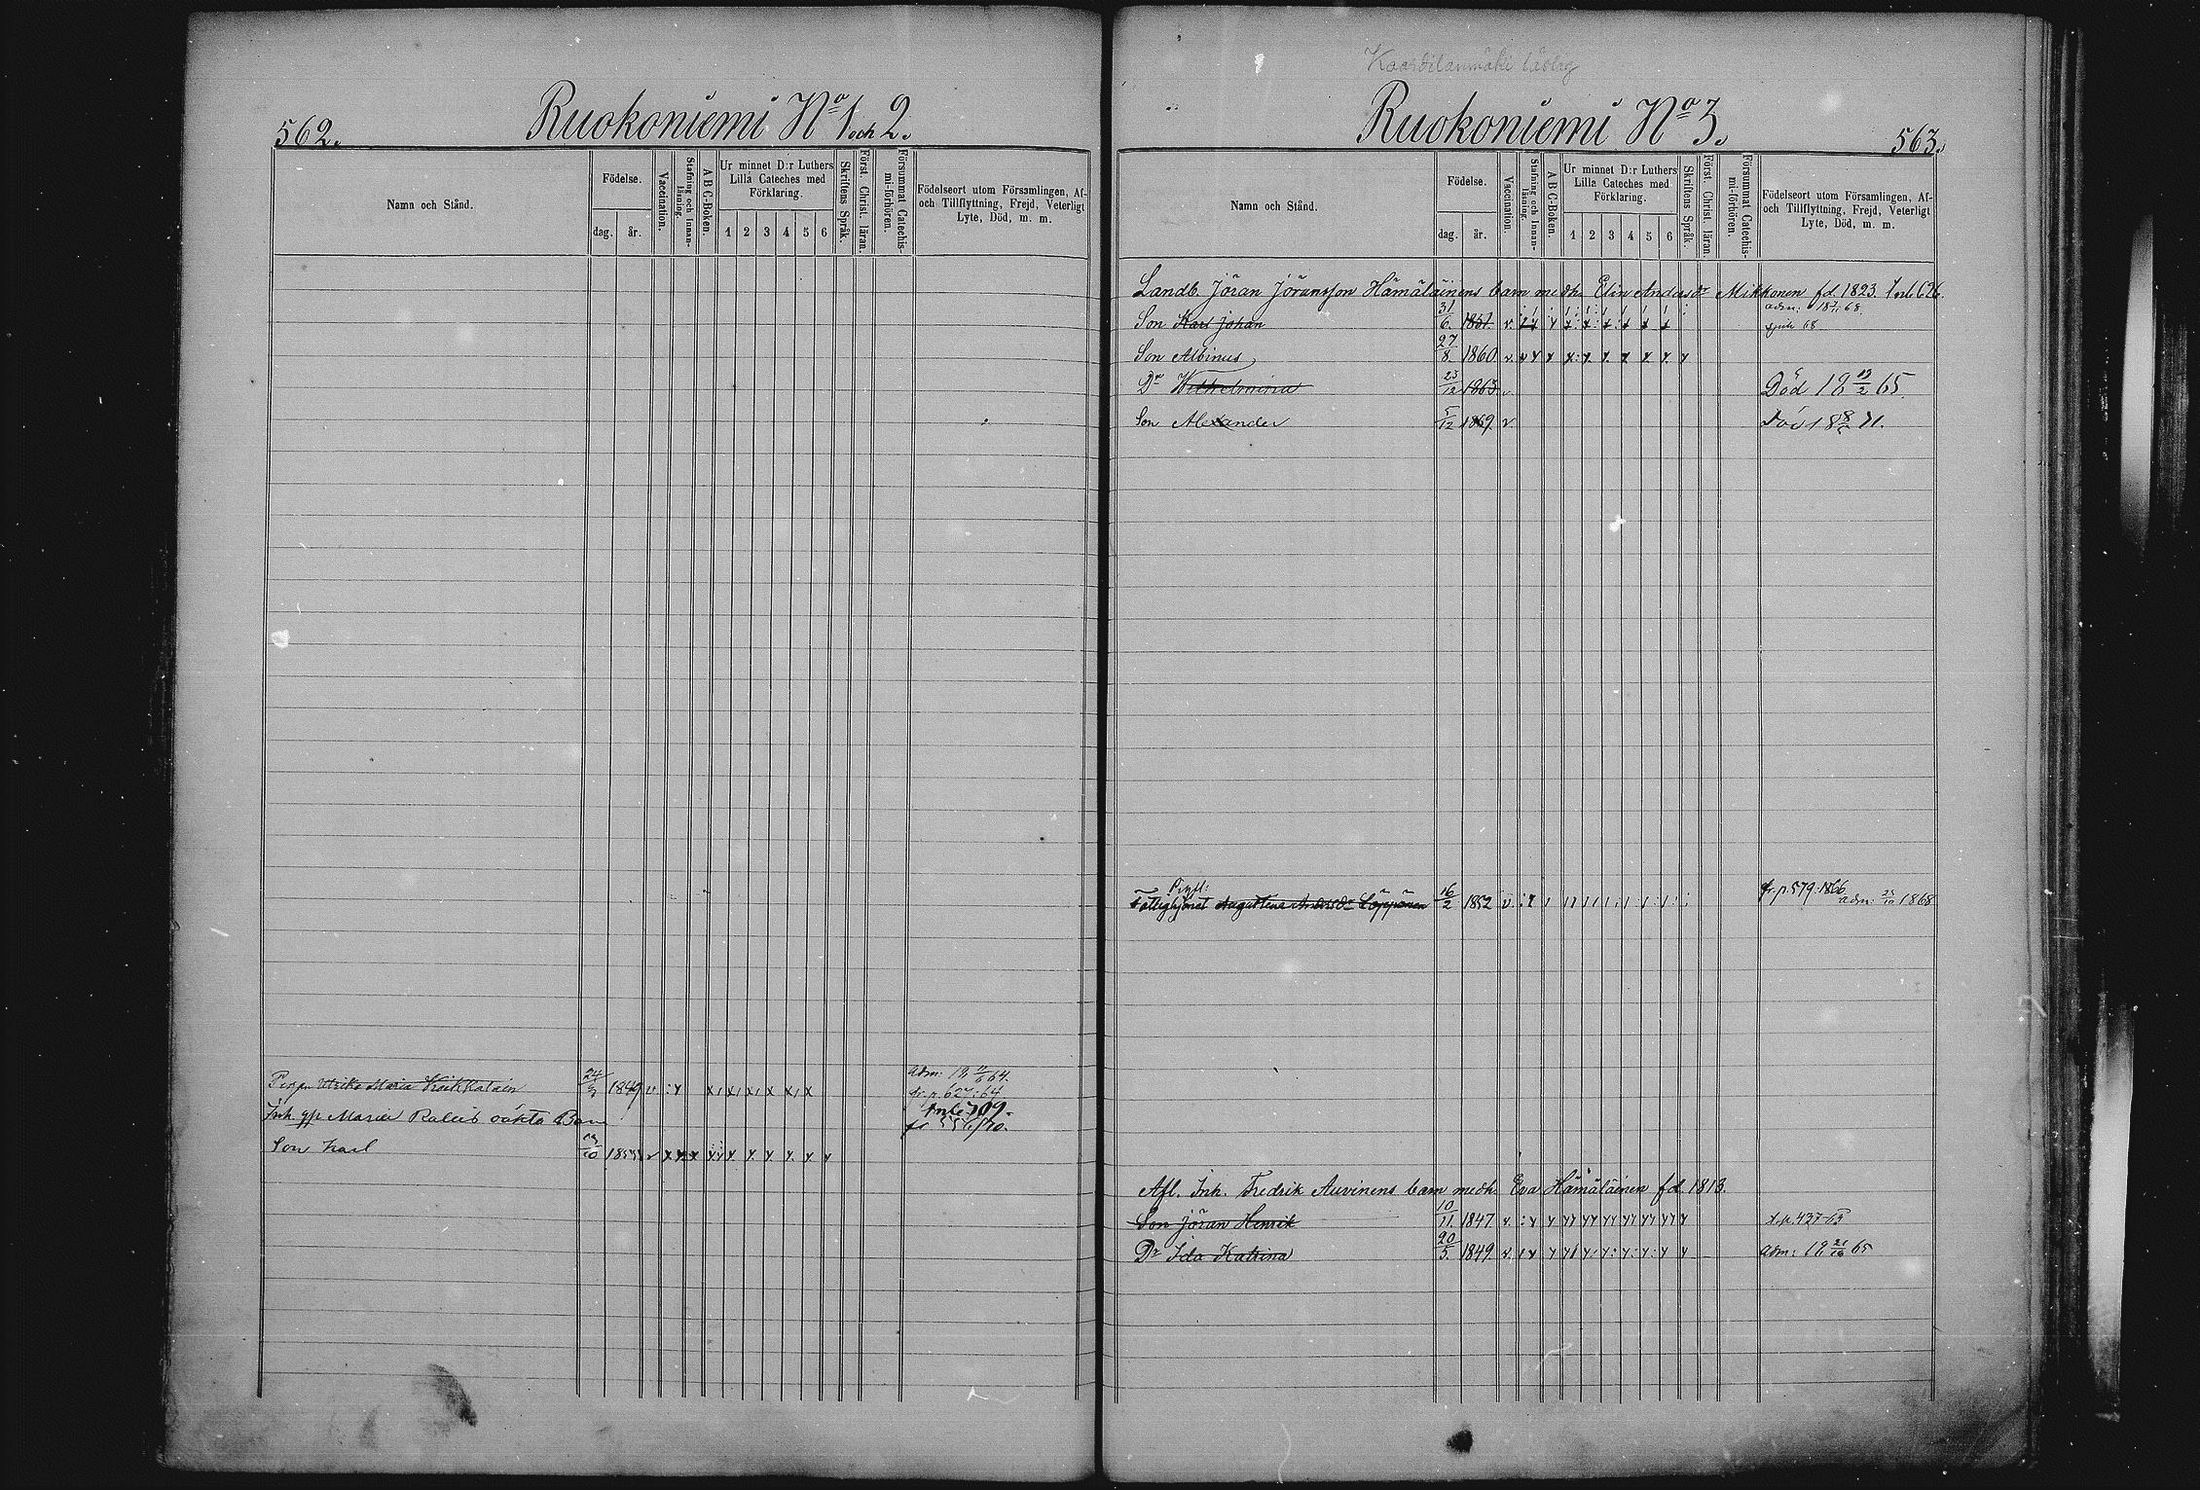 562.
Ruokoniemi No 1 och 2.
Namn och Stånd.
Födelse.
dag.
år.
Vaccination.
Stafning och Innanläsning.
A B C-Boken.
Ur minnet D:r Luthers Lilla Cateches med Förklaring.
1 2 3 4 5 6
Skriftens Språk.
Först. Christ. läran.
Försummat Catechismi-förhören.
Födelseort utom Församlingen, Af- och Tillflyttning, Frejd, Veterligt Lyte, Död, m. m.
Ulrika Maria 1849 v adm: 64.
fr. p. 627: 64
Maria oäkta Barn 709.
Son Karl 10 1855 v
Ruokoniemi No 3.
563.
Namn och Stånd.
Födelse.
dag.
år.
Vaccination.
Stafning och Innanläsning.
A B C-Boken.
Ur minnet D:r Luthers Lilla Cateches med Förklaring.
1 2 3 4 5 6
Skriftens Språk.
Först. Christ. läran.
Försummat Catechismi-förhören.
Födelseort utom Församlingen, Af- och Tillflyttning, Frejd, Veterligt Lyte, Död, m. m.
Landb. Jöran Jöransson Hämäläinens barn med h. Elin Andersdr Mikkonen fd. 1823. 626.
Son Karl Johan 31/6. 1851 v. adm: 68
Son Albinus 27/8. 1860. v.
Dr Wilhelmina 23/12 1863. v. Död 18 19/2 65.
Son Alexander 5/12 1869. v Död 18 71.
Fattighjonet Augustina Andersdr Löppönen 16/2 1852 v. fr. p. 579: 1866
adm: 1868
Afl. Inh. Fredrik Auvinens barn med h. Eva Hämäläinen fd. 1813.
Son Jöran Henrik 10/11. 1847 v. t. p. 437
Dr Ida Katrina 20/5. 1849. v. adm: 18 65